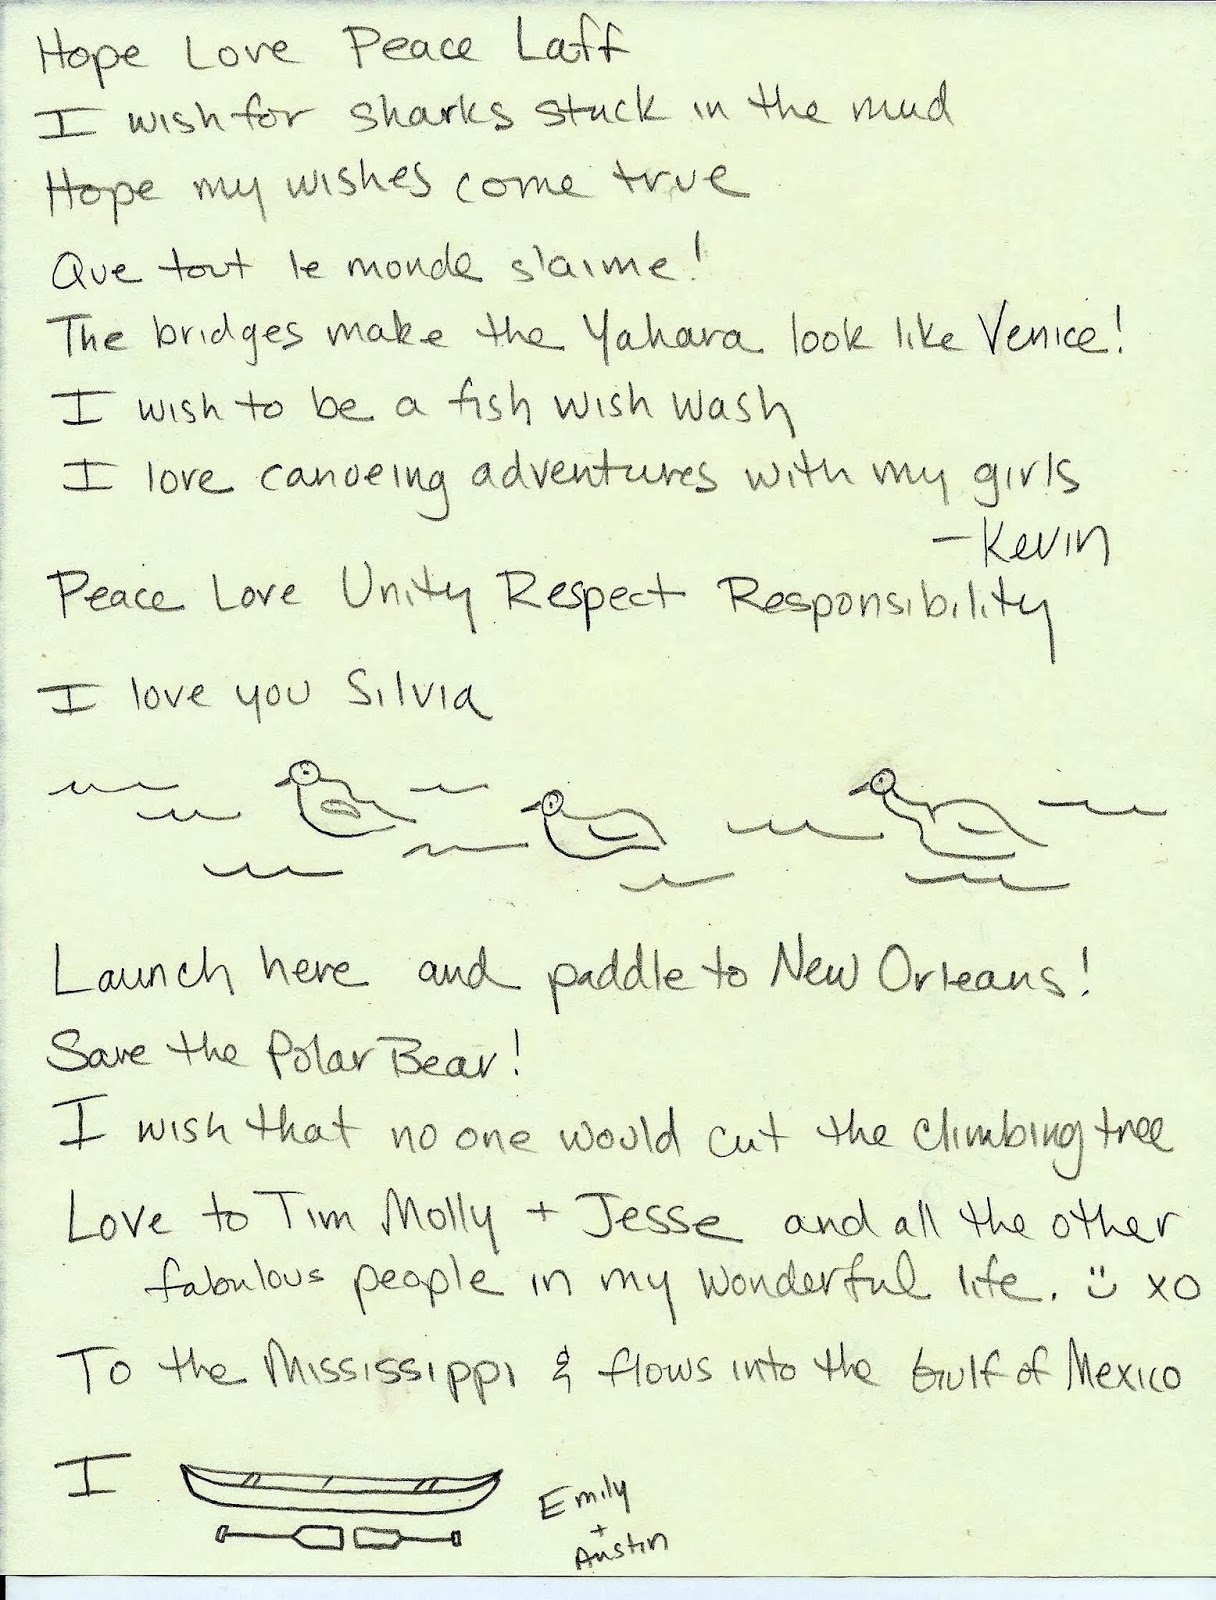 Hope Love Peace Laff
I wish for sharks stuck in the mud
Hope my wishes come true
Que tout le monde s'aime!
The bridges make the Yahara look like Venice!
I wish to be a fish wish wash
I love canoeing adventures with my girls
-Kevin
Peace Love Unity Respect Responsibility
I love you Silvia
Launch here and paddle to New Orleans!
Save the Polar Bear!
I wish that no one would cut the climbing tree
Love to Tim Molly + Jesse and all the other
fabulous people in my wonderful life. :) xo
To the Mississippi & flows into the Gulf of Mexico
I
Emily
+
Austin